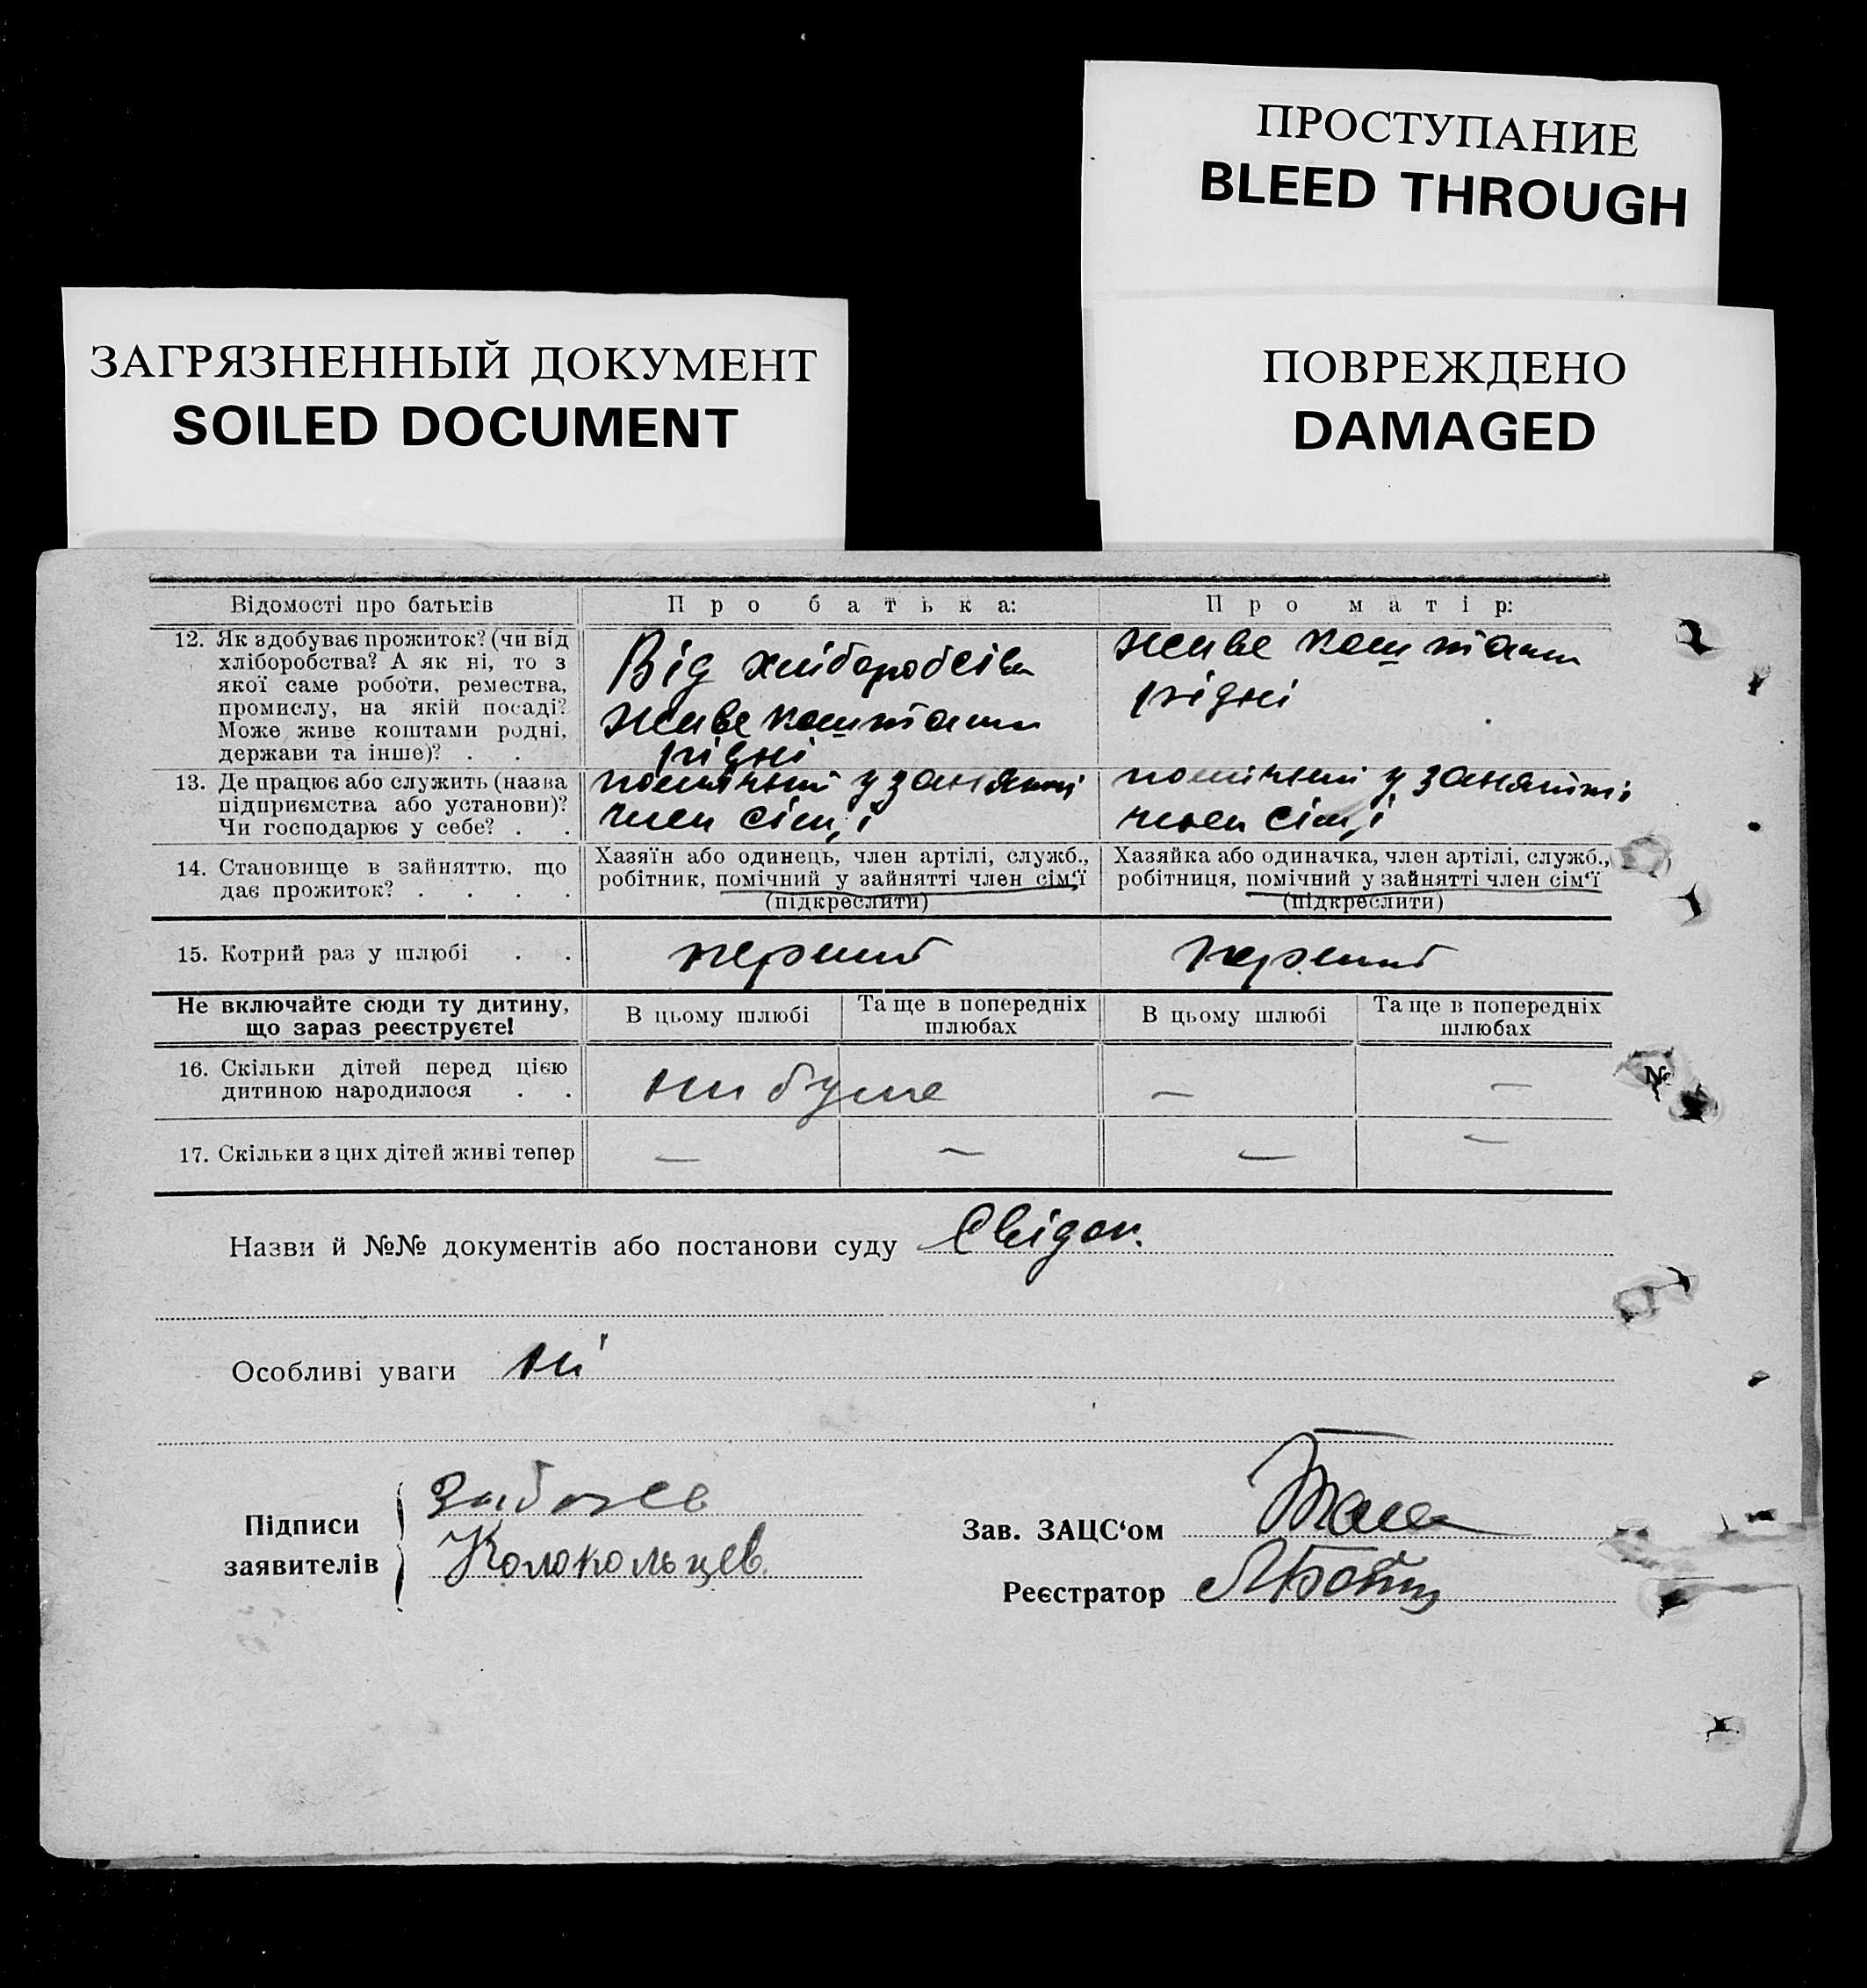 ПРОСТУПАНИЕ
BLEED THROUGH
ЗАГРЯЗНЕННЫЙ ДОКУМЕНТ
SOILED DOCUMENT
ПОВРЕЖДЕНО
DAMAGED
Відомості про батьків
Про батька:
Про матір:
12. Як здобуває прожиток? (чи від
хліборобства? А як ні, то з
якої саме роботи, ремества,
промислу, на якій посаді?
Може живе коштами родні,
держави та інше)? . .
Від хліборобства
живе коштами
рідні
живе коштами
рідні
13. Де працює або служить (назва
підприємства або установи)?
Чи господарює у себе? . .
помічний у занятті
член сім'ї
помічний у занятті
член сім'ї
14. Становище в зайняттю, що
дає прожиток? . . . .
Хазяїн або одинець, член артілі, служб.,
робітник, помічний у зайнятті член сім'ї
(підкреслити)
Хазяйка або одиначка, член артілі, служб.,
робітниця, помічний у зайнятті член сім'ї
(підкреслити)
15. Котрий раз у шлюбі . .
перший
перший
Не включайте сюди ту дитину,
що зараз реєструєте!
В цьому шлюбі
Та ще в попередніх
шлюбах
В цьому шлюбі
Та ще в попередніх
шлюбах
16. Скільки дітей перед цією
дитиною народилося . .
— —
17. Скільки з цих дітей живі тепер
— — — —
Назви й №№ документів або постанови суду Свідок.
Особливі уваги ні
Підписи
заявителів
Колокольцев
Зав. ЗАЦС'ом
Реєстратор
№